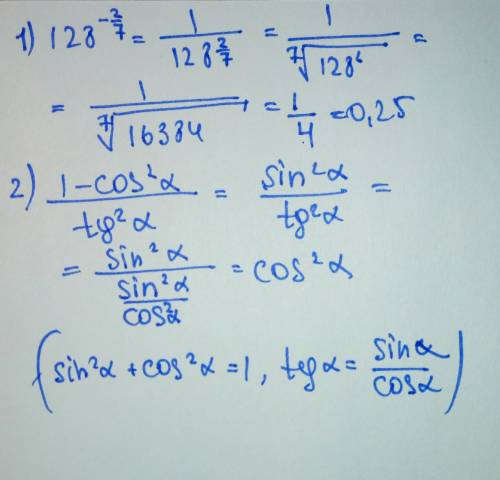 1) 128^(-2/7) = 1/128^(2/7) = 1/⁷√128² =
= 1/⁷√16384 = 1/4 = 0,25
2) (1-cos²α)/(tg²α) = (sin²α)/(tg²α) =
= (sin²α)/((sin²α)/(cos²α)) = cos²α
(sin²α + cos²α = 1, tgα = sinα/cosα)